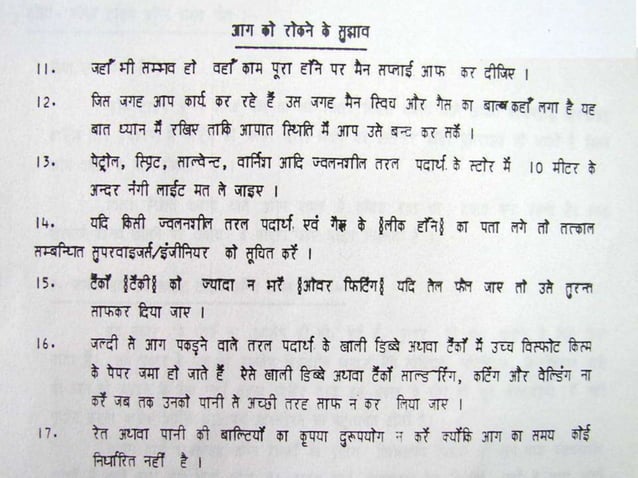 आग को रोकने के सुझाव
11. जहाँ भी सम्भव हो वहाँ काम पूरा होंने पर मैन सप्लाई आफ कर दीजिए ।
12. जिस जगह आप कार्य कर रहे हैं उस जगह मैन स्विच और गैस का बाल्ब कहाँ लगा है यह
बात ध्यान में रखिए ताकि आपात स्थिति में आप उसे बन्द कर सकें ।
13. पेट्रोल, स्प्रिट, साल्वेन्ट, वार्निश आदि ज्वलनशील तरल पदार्थ के स्टोर में 10 मीटर के
अन्दर नंगी लाईट मत ले जाइए ।
14. यदि किसी ज्वलनशील तरल पदार्थ एवं गैस के §लीक होंने§ का पता लगे तो तत्काल
सम्बन्धित सुपरवाइजर्स/इंजीनियर को सूचित करें ।
15. टैंकों §टैंकी§ को ज्यादा न भरें §ओवर फिटिंग§ यदि तेल फैल जाए तो उसे तुरन्त
साफकर दिया जाए ।
16. जल्दी से आग पकड़ने वाले तरल पदार्थ के खाली डिब्बे अथवा टैंकों में उच्च विस्फोट किस्म
के पेपर जमा हो जाते हैं ऐसे खाली डिब्बे अथवा टैंकों साल्ड-रिंग, कटिंग और वेल्डिंग ना
करें जब तक उनको पानी से अच्छी तरह साफ न कर लिया जाए ।
17. रेत अथवा पानी की बाल्टियों का कृपया दुरूपयोग न करें क्योंकि आग का समय कोई
निर्धारित नहीं है ।